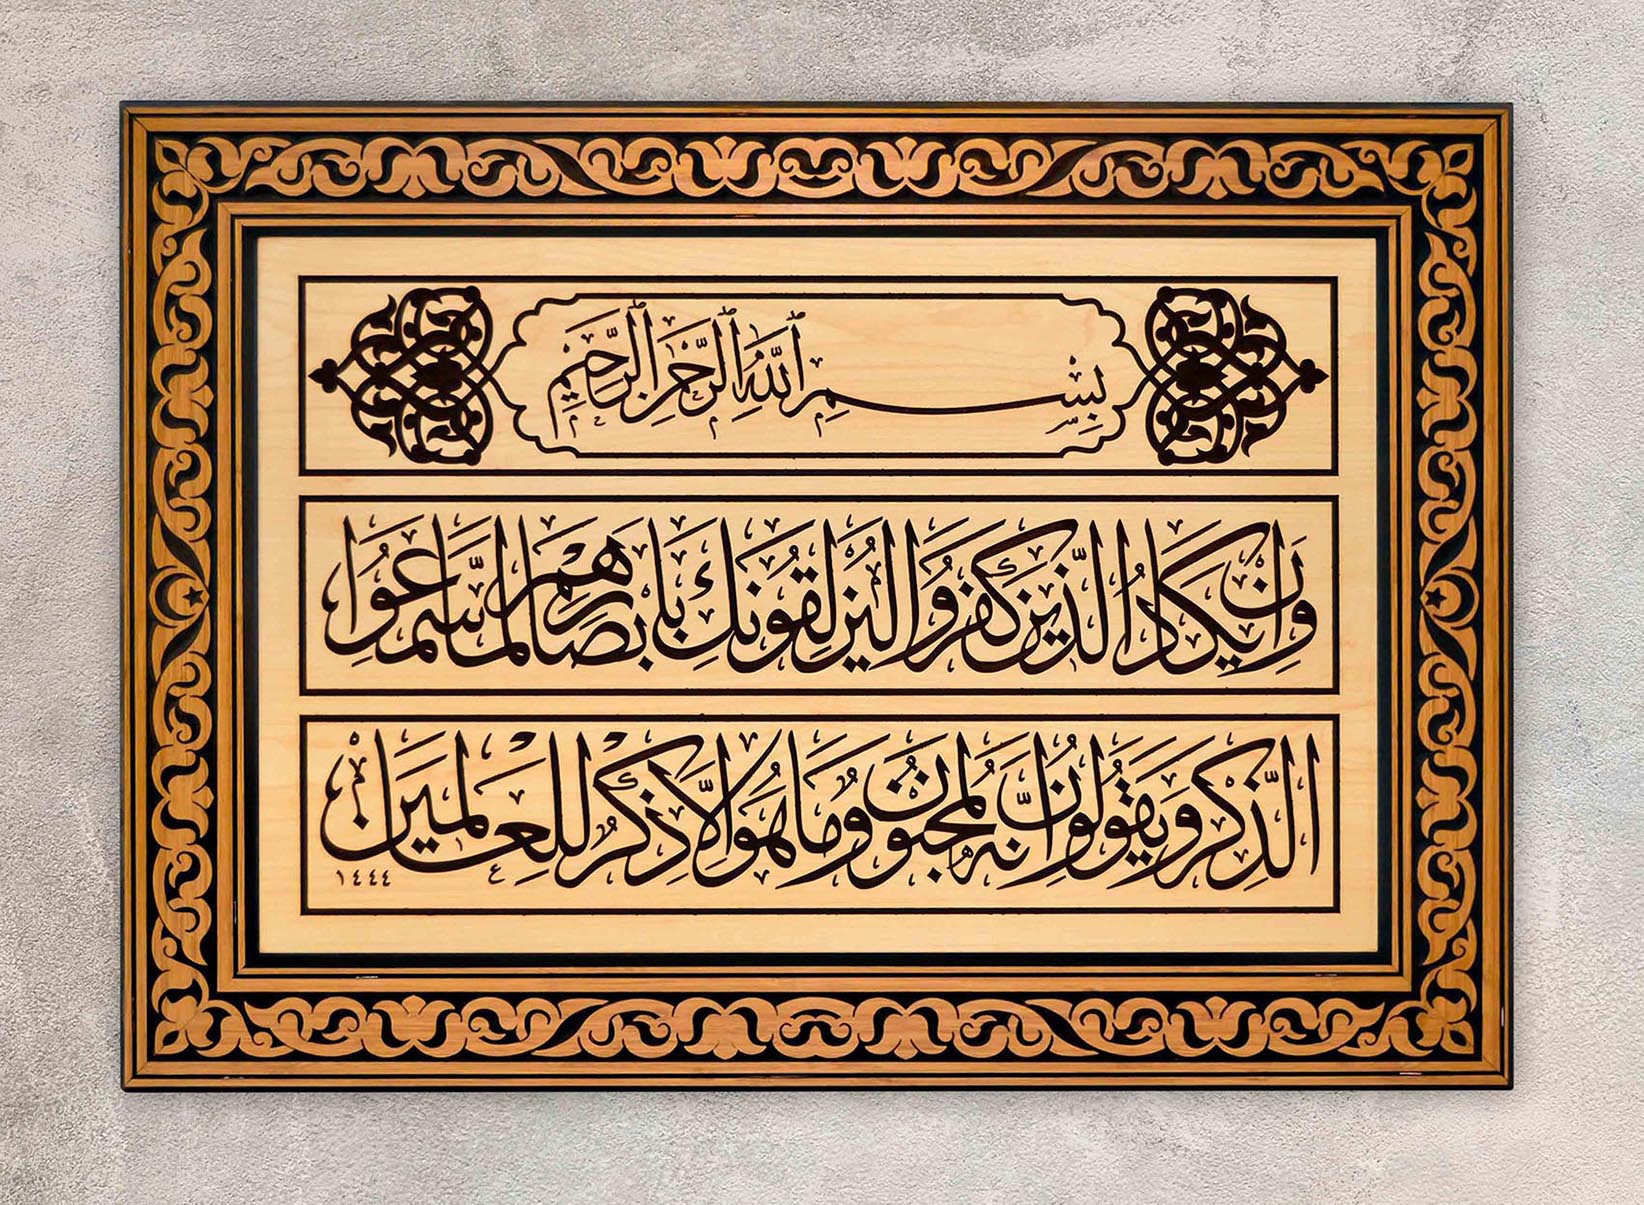 بِسْمِ اللَّهِ الرَّحْمَنِ الرَّحِيمِ
وَإِن يَكَادُ الَّذِينَ كَفَرُوا لَيُزْلِقُونَكَ بِأَبْصَارِهِمْ لَمَّا سَمِعُوا
الذِّكْرَ وَيَقُولُونَ إِنَّهُ لَمَجْنُونٌ وَمَا هُوَ إِلَّا ذِكْرٌ لِلْعَالَمِينَ
١٤٤٤